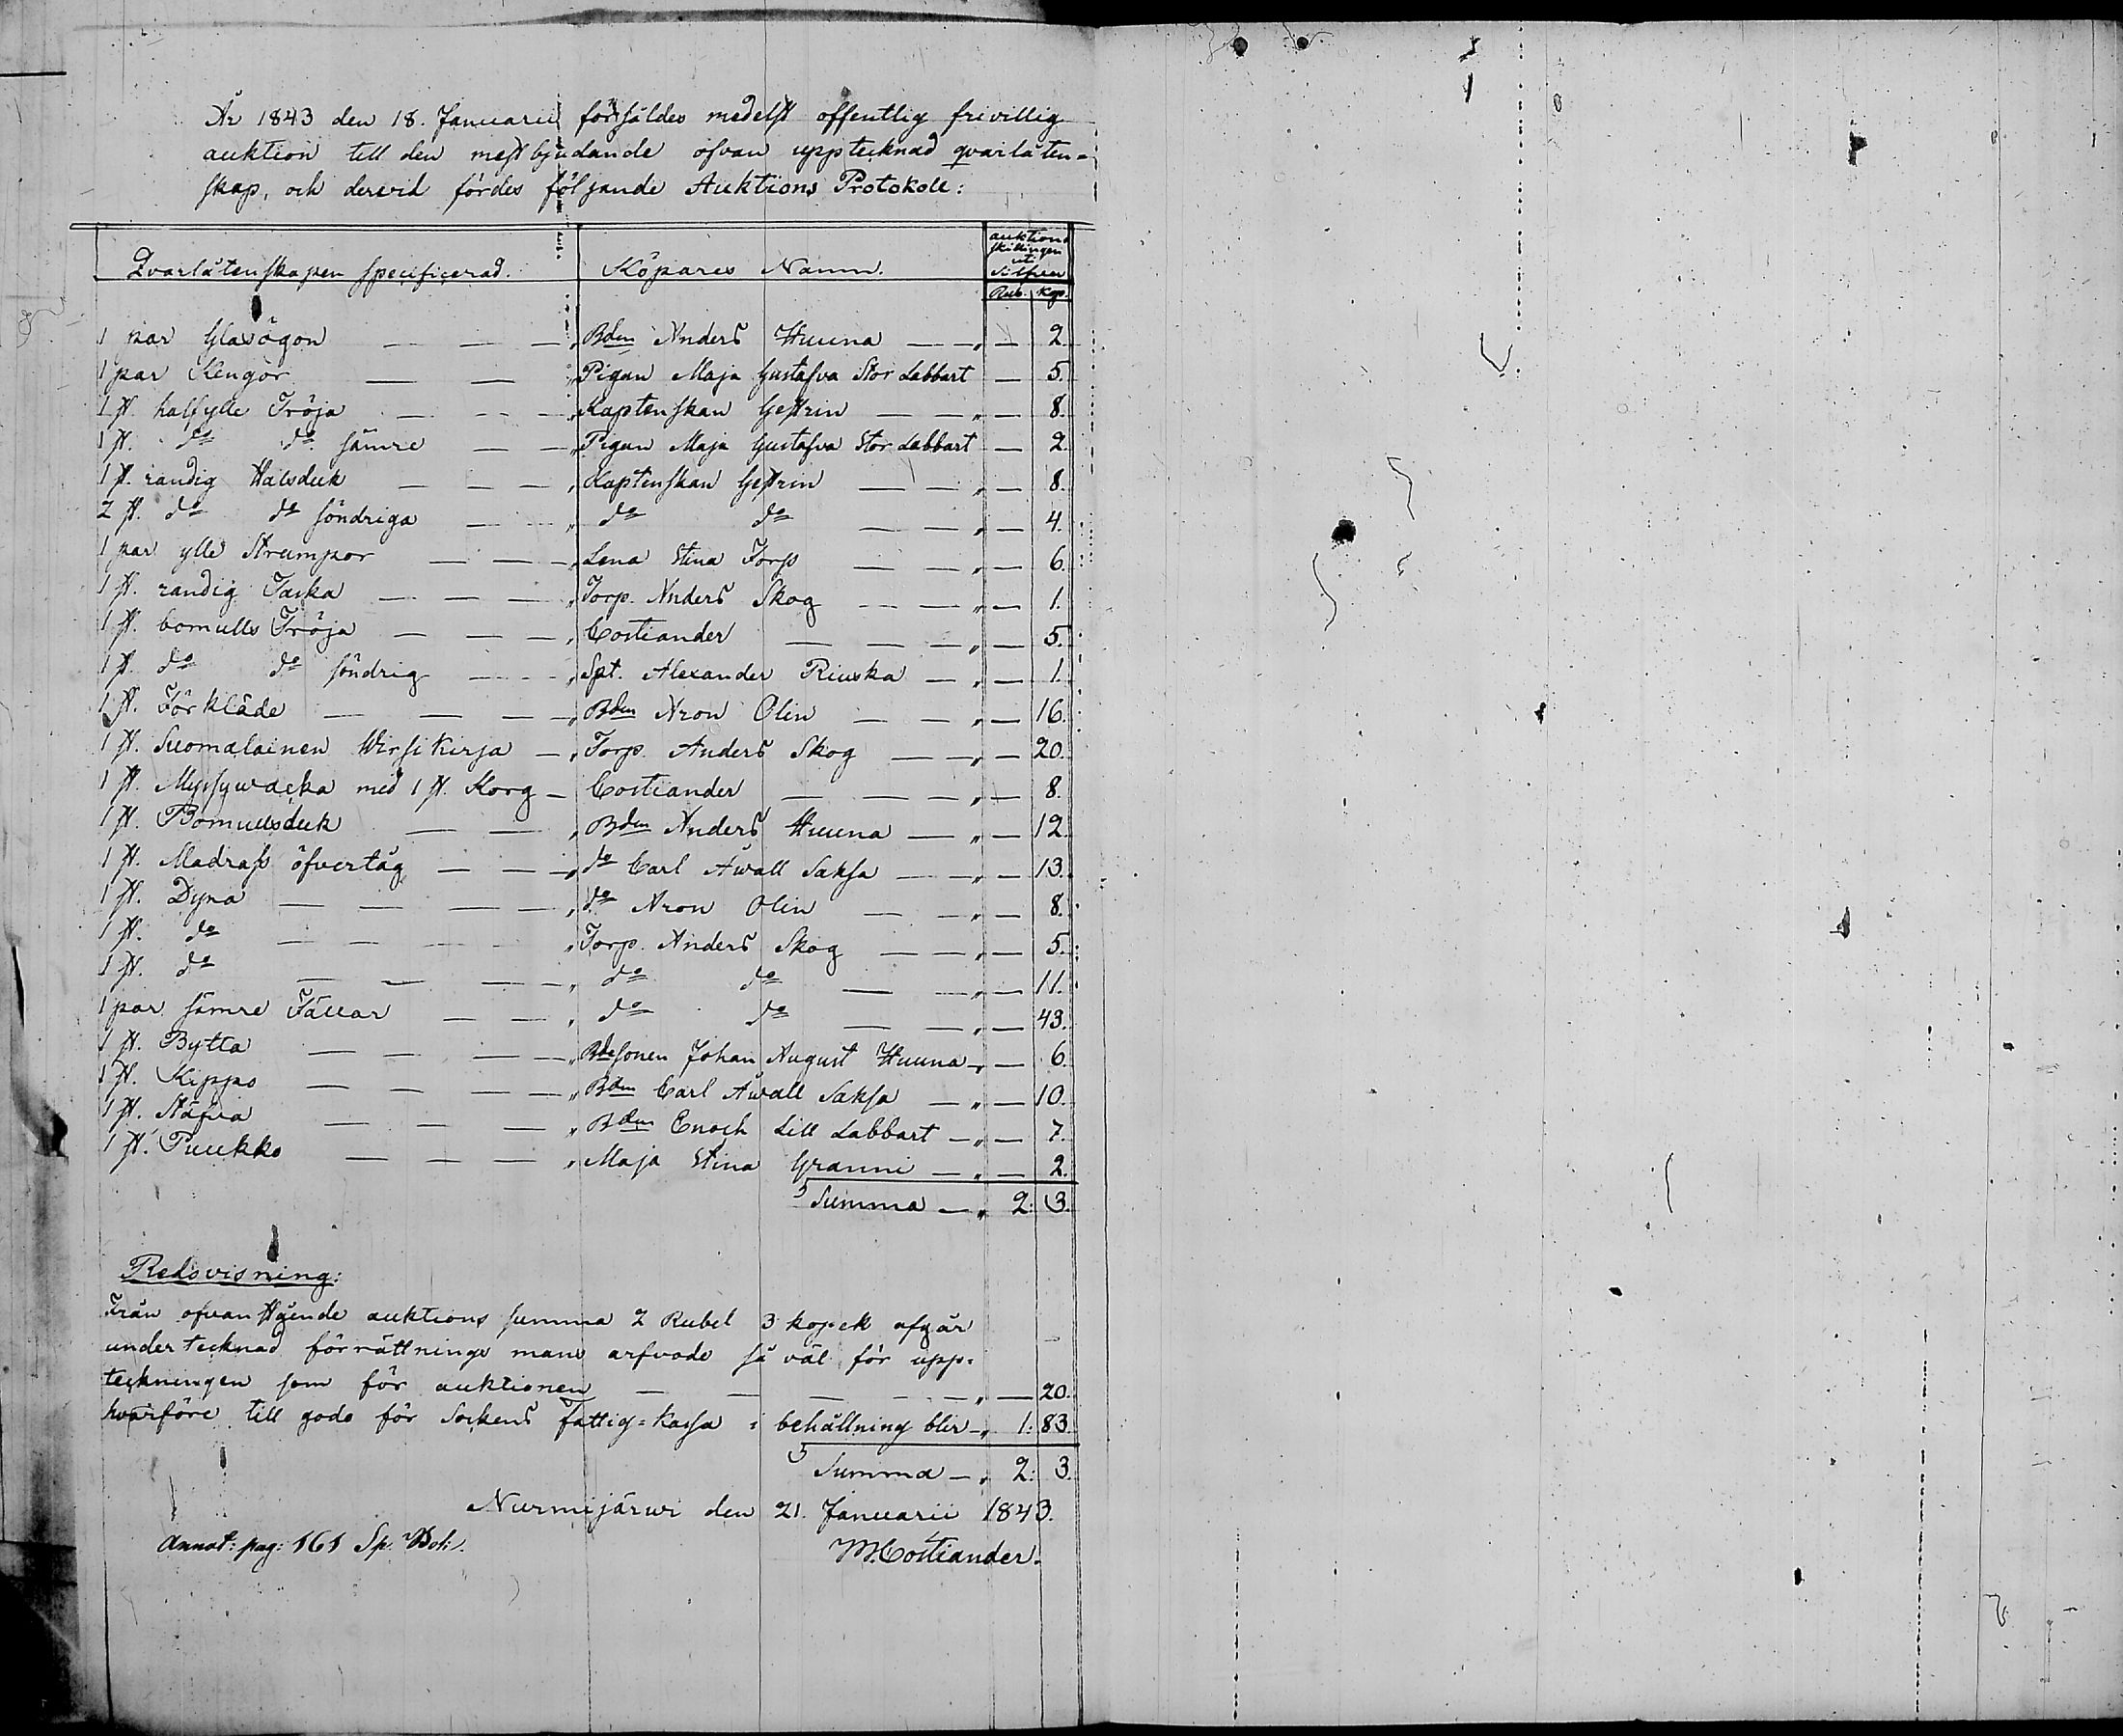 År 1843 den 18. Januarii försåldes medelst offentlig frivillig
auktion till den mestbjudande ofvan upptecknad qvarlåten-
skap, och dervid fördes följande Auktions Protokoll:
Qvarlåtenskapen specificerad. Köpares Namn. auktions skillingen uti Silfver
Rub. Kop.
1 par Glasögon — — — „ Bdn Anders Huuna — — „ — 2.
1 par Kengor — — „ Pigan Maja Gustafva Stor Labbart — 5.
1 st. halfylle Tröja — — — „ Kaptenskan Gestrin — — „ — 8.
1 st. do do sämre — — „ Pigan Maja Gustafva Stor Labbart — 2.
1 st. randig Halsduk — — — „ Kaptenskan Gestrin — — „ — 8.
2 st. do do söndriga — — „ do do — — „ — 4.
1 par ylle Strumpor — — — „ Lena Stina Torp — — „ — 6.
1 st. randig Taska — — — „ Torp. Anders Skog — — „ — 1.
1 st. bomulls Tröja — — — „ Costiander — — — „ — 5.
1 st. do do söndrig — — „ Spt. Alexander Riuska — „ — 1.
1 st. Förkläde — — — — „ Bdn Aron Olin — — „ — 16.
1 st. Suomalainen Wirsikirja — „ Torp. Anders Skog — — „ — 20.
1 st. Myssywacka med 1 st. Korg — Costiander — — — „ — 8.
1 st. Bomullsduk — — „ Bdn Anders Huuna — „ — 12.
1 st. Madrass öfvertåg — — — „ do Carl Åwall Saksa — — „ — 13.
1 st. Dyna — — — — „ do Aron Olin — — „ — 8.
1 st. do — — — — „ Torp. Anders Skog — — „ — 5.
1 st. do — — — — „ do do — — „ — 11.
1 par sämre Fällar — — „ do do — — „ — 43.
1 st. Bytta — — — — „ Bdesonen Johan August Huuna „ — 6.
1 st. Kippo — — — — „ Bdn Carl Åwall Saksa — „ — 10.
1 st. Stäfva — — — „ Bdn Enoch Lill Labbart — „ — 7.
1 st. Puukko — — — „ Maja Stina Granni — „ — 2.
Summa — „ 2: 3.
Redovisning:
Från ofvanstående auktions summa 2 Rubel 3 kopek afgår
undertecknad förrättnings mans arfvode så väl för upp-
teckningen som för auktionen — — — — — „ — 20.
hvarföre till godo för Sockens fattig-Kassa i behållning blir — „ 1: 83.
Summa — „ 2: 3.
Nurmijärwi den 21. Januarii 1843.
Annot: pag: 161 Sp. Bok. M. Costiander.